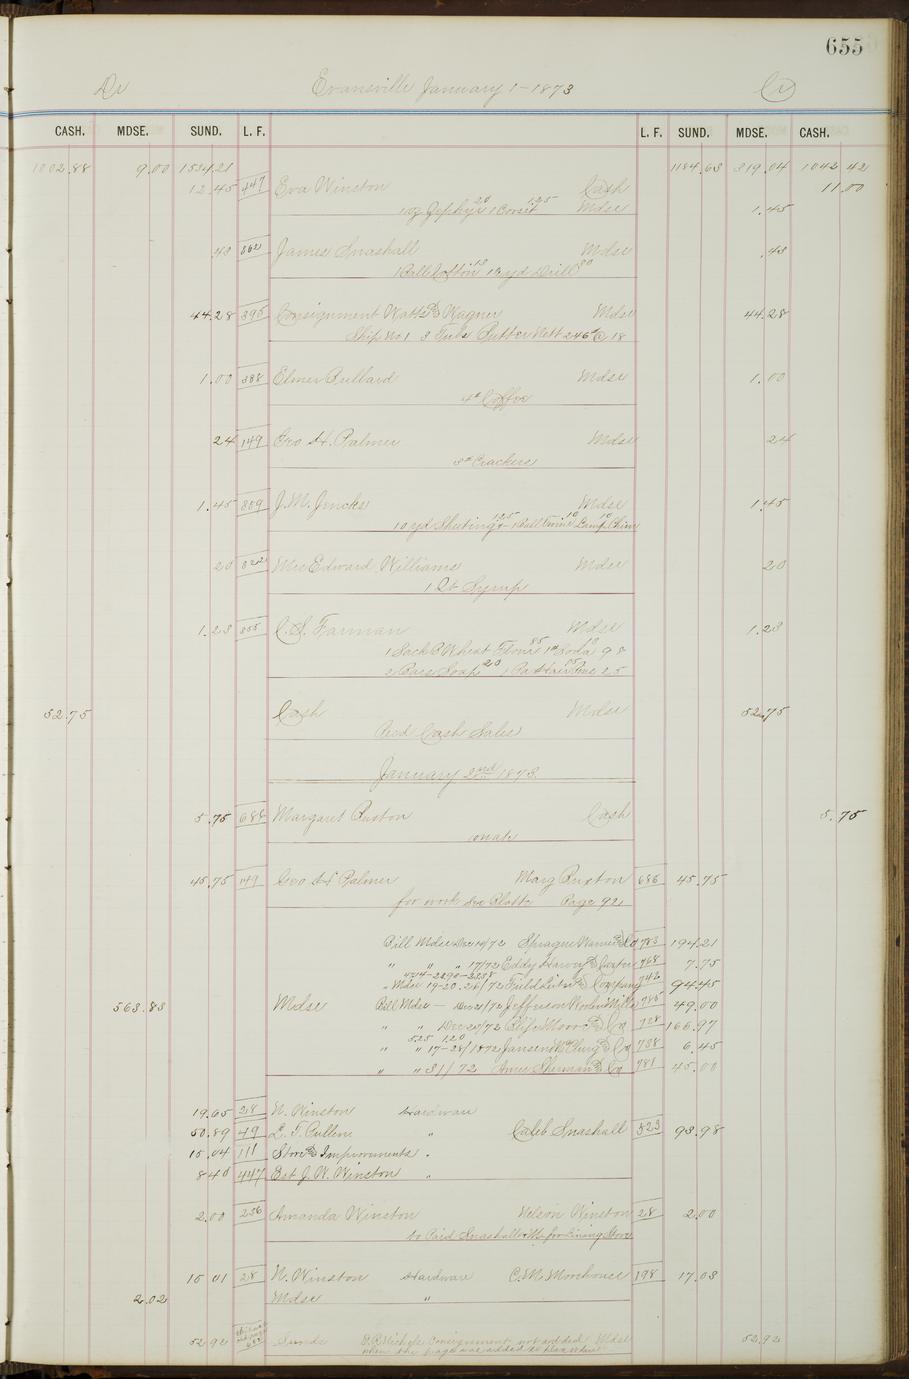 655
Dr Evansville January 1-1873 Cr
CASH. MDSE. SUND. L. F. L. F. SUND. MDSE. CASH.
1002.88 9.00 1534.21 1184.63 319.04 1042 42
12.45 447 Eva Winston Cash 11.00
1 oz Zephyr 20 1 Corset 1.25 Mdse 1.45
.43 862 James Snashall Mdse .43
1 Ball Cotton 13 yd Drill 30
44.28 395 Consignment Watts & Wagner Mdse 44.28
Ship No 1 3 Tubs Butter Nett 246# @ 18
1.00 388 Elmer Bullard Mdse 1.00
4# Coffee
24 149 Geo H. Palmer Mdse 24
3# Crackers
1.45 859 J.M. Jincks Mdse 1.45
10 yd Sheeting 1.25 1 Ball Twine 10 Lamp Chim 10
20 Mrs Edward Williams Mdse 20
1 Qt Syrup
1.23 855 C.S. Farman Mdse 1.23
1 Sack B Wheat Flour 85 1# Soda 13 98
2 Bars Soap 20 25
52.75 Cash Mdse 52.75
Recd Cash Sales
January 2nd 1873
5.75 686 Margaret Ruxton Cash 5.75
on a/c
45.75 149 Geo H Palmer Marg Ruxton 686 45.75
for work See Blott Page 92
Bill Mdse Dec 14/72 Sprague Warner & Co 783 194.21
" " " 17/72 Eddy Harvey & Carter 768 7.75
" Mdse 19-20.26/72 Field Leiter & Company 742 94.45
563.83 Mdse Bill Mdse - Dec 21/72 Jefferson Woolen Mills 49.00
" " Dec 20/72 & Co 728 166.97
525 120
" " 17-28/1872 Jansen McClurg & Co 738 6.45
" " 31/72 Sherman & Co 781 45.00
19.65 28 N. Winston Hardware
50.89 49 L. T. Pullen " Caleb Snashall 523 93.98
15.04 111 Store & Improvements "
8.40 447 Est J. W. Winston "
2.00 256 Amanda Winston Nelson Winston 28 2.00
to Paid Snashall for Store
15 01 28 N. Winston Hardware C.M. Morehouse 198 17.03
2.02 Mdse "
52.92 Sunds Consignment not added Mdse 52.92
when the page was added